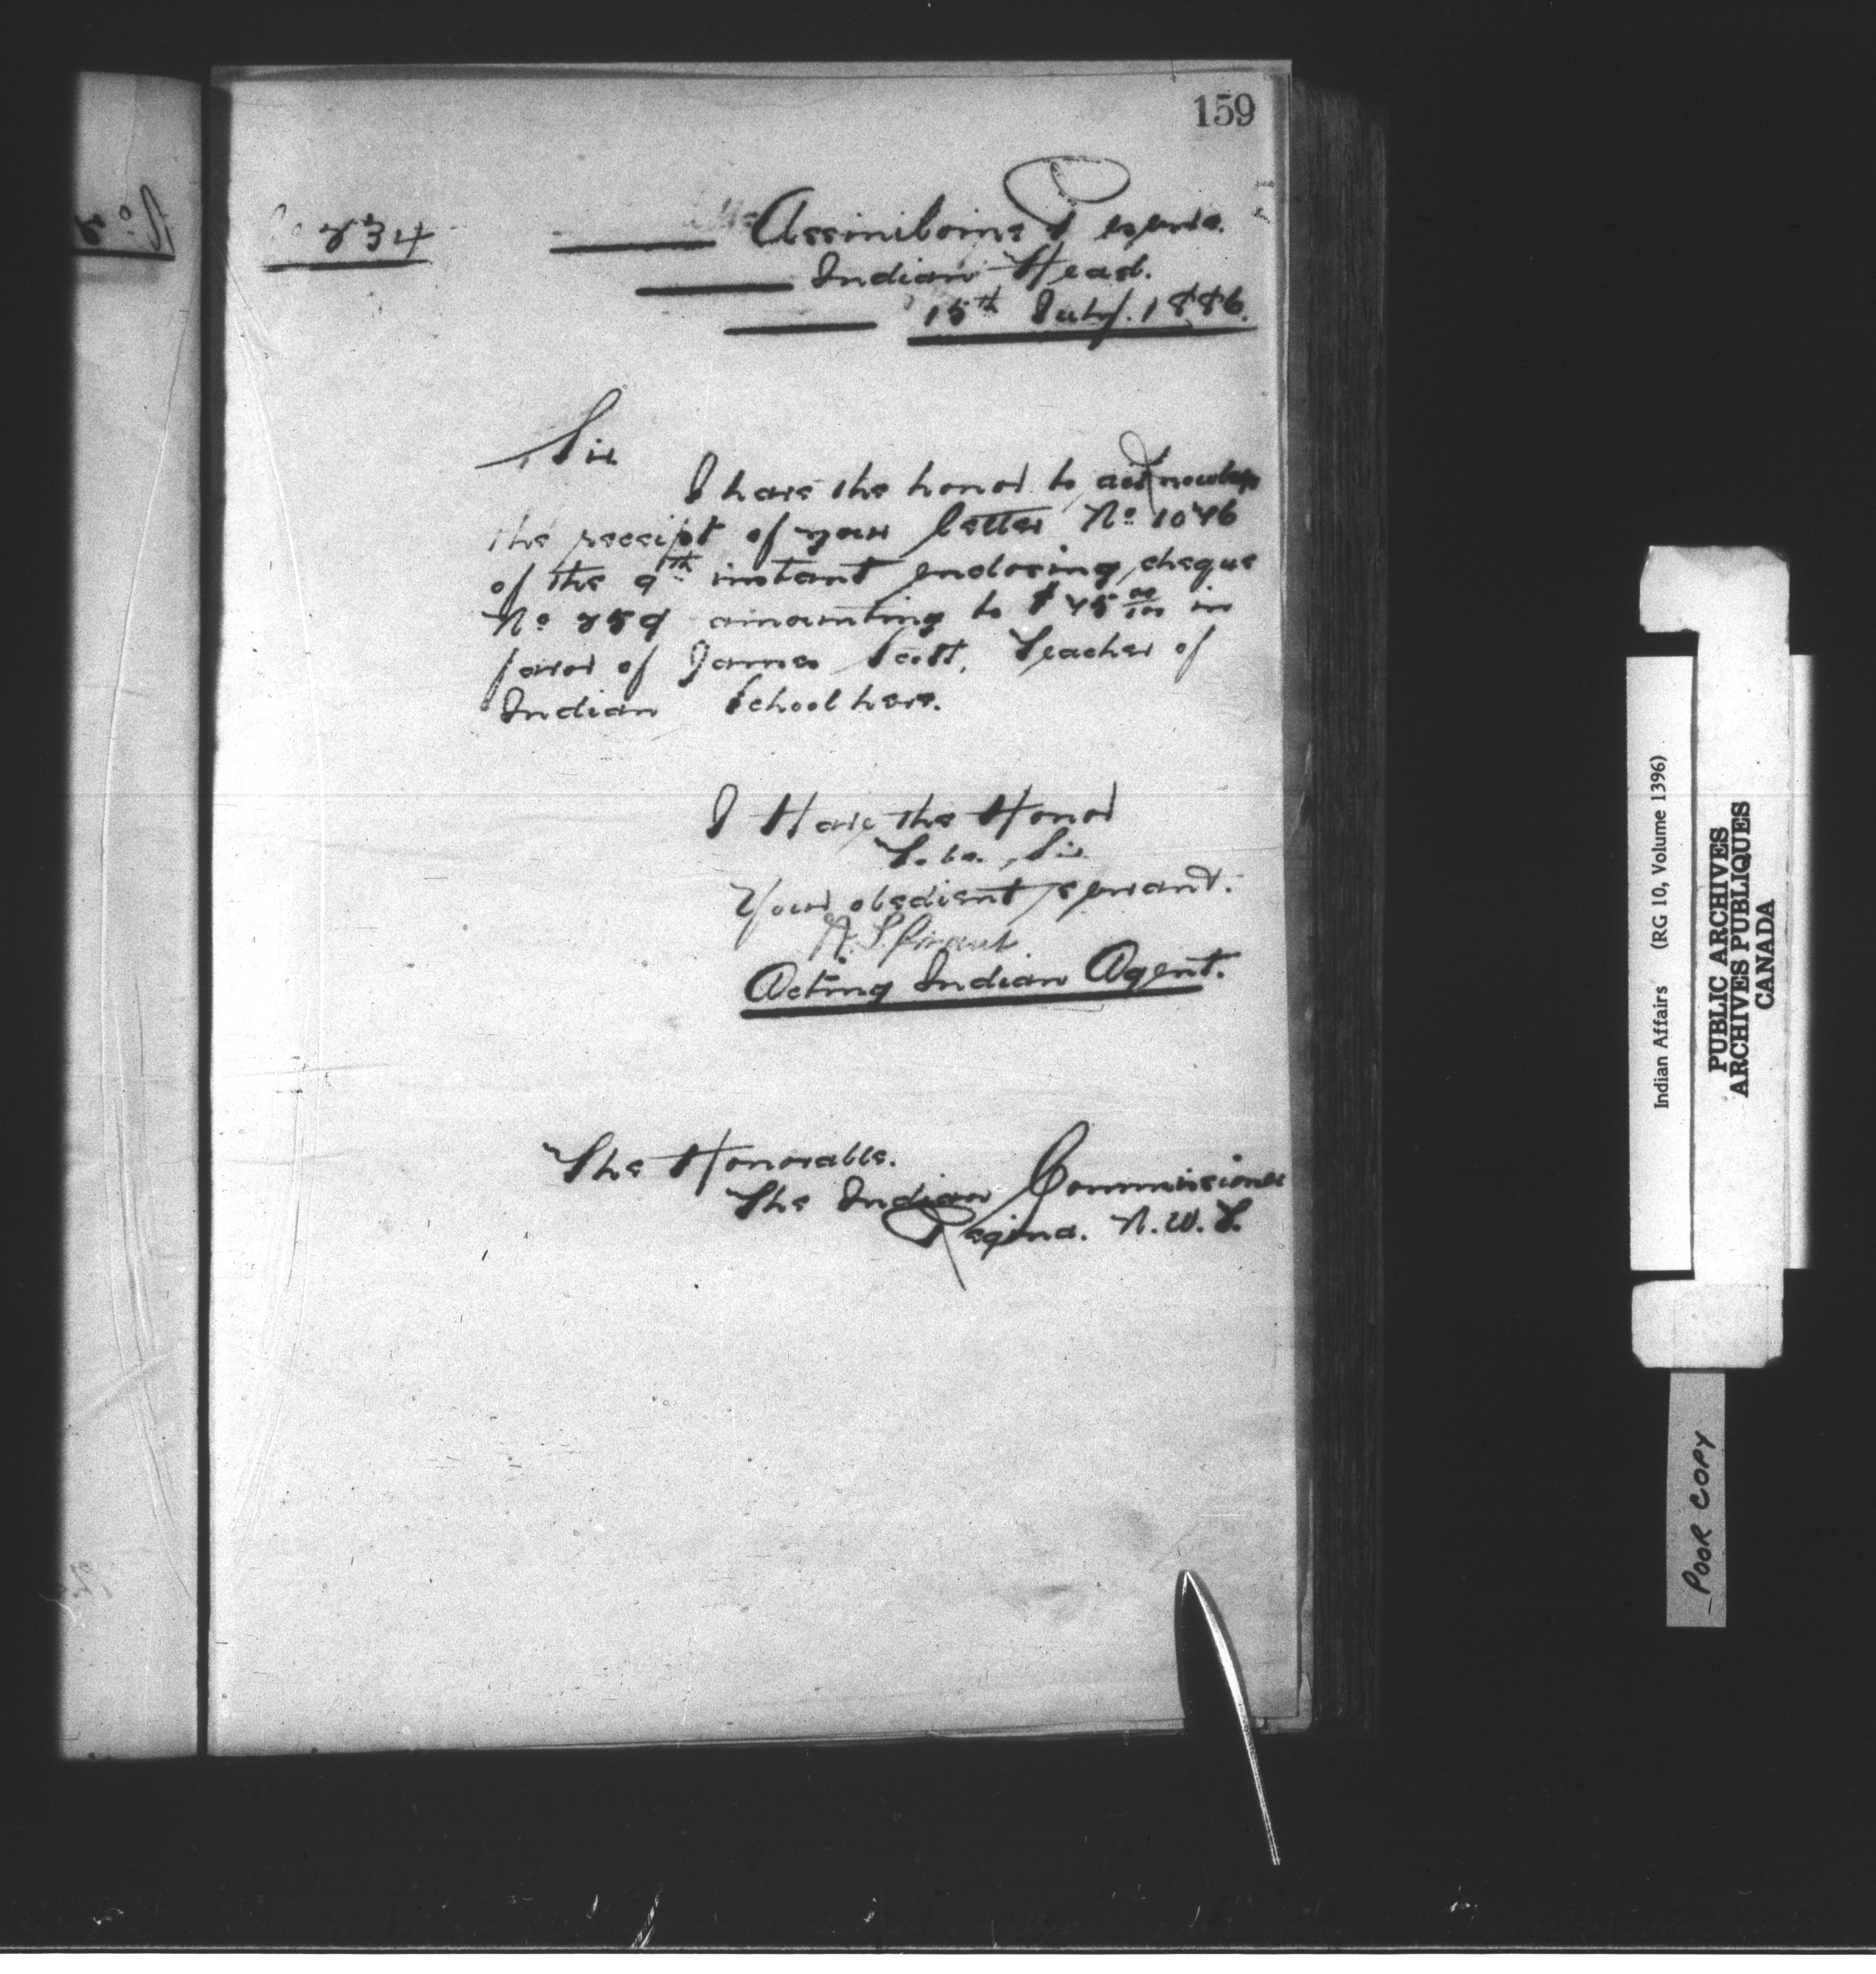 159
234
Assiniboine Reserve.
Indian Head.
15th July. 1886.
Sir
I have the honor to acknowledge
the receipt of your letter No 1076
of the 9th instant enclosing cheque
No 259 amounting to $75 00/100 in
favor of James Scott, Teacher of
Indian School here.
I Have the Honor
To be, Sir
Your obedient servant.
Acting Indian Agent.
The Honorable.
The Indian Commissioner
Regina. N.W.T.
Indian Affairs (RG 10, Volume 1396)
PUBLIC ARCHIVES
ARCHIVES PUBLIQUES
CANADA
POOR COPY